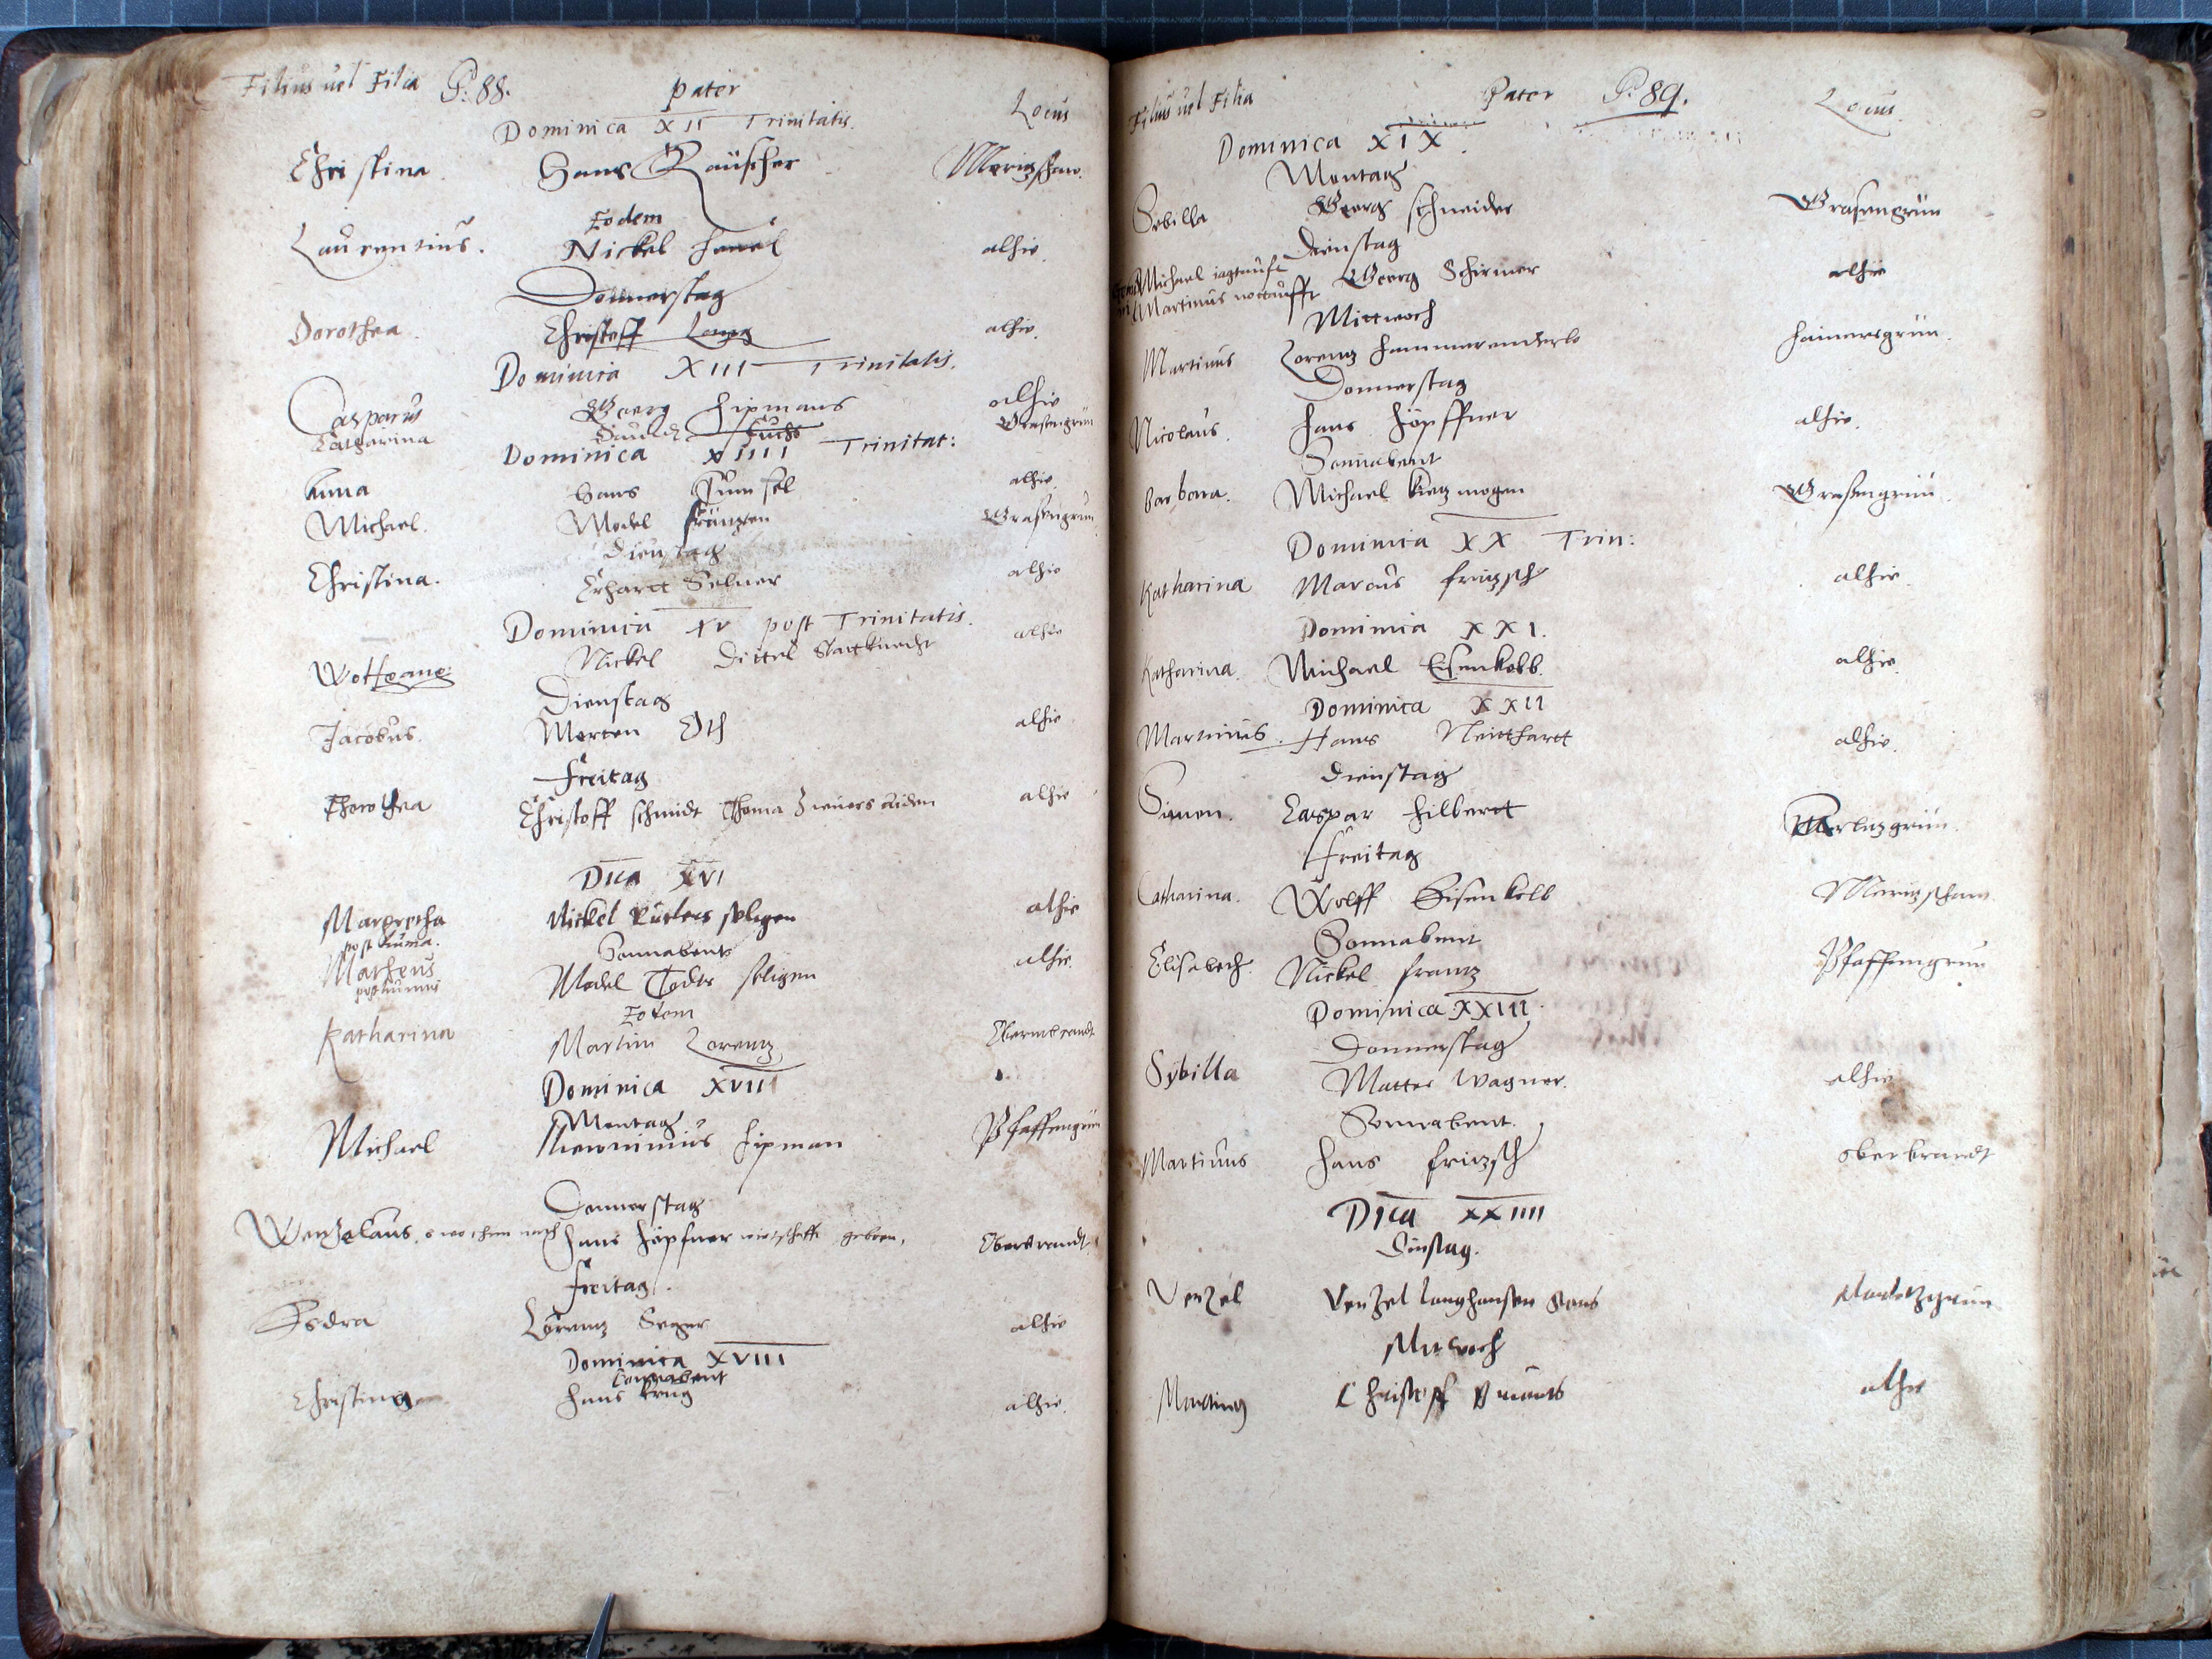 Filius uel Filia P. 88. pater Locus
Dominica XII Trinitatis.
Christina. Hans Rauscher Moritzschaw.
Eodem
Laurentius. Nickel alhie.
Donnerstag
Dorothea. Christoff Lang alhie.
Dominica XIII Trinitatis.
Casparus Georg Hipmans alhie
Catharina Fuchs Grasengrün
Dominica XIIII Trinitat:
Anna Hans alhie.
Michael. Model Grasengrün
Dienstag
Christina. Erhartt Selner alhie
Dominica XV post Trinitatis.
Wolfgang Nickel Dittel Stattknecht alhie
Dienstag
Jacobus. Merten alhie
Freitag
Thorothea Christoff schmidt Thoma alhie
Dica XVI
Margretha Nickel seligen alhie
posthuma.
Sonnabent
Matheus Model Toders seligen alhie.
posthumus
Eodem
Katharina Martin Lorentz Oberrnbrandt
Dominica XVII
Montag
Michael Hieronimus Hipman Pfaffengrün
Donnerstag
Wenzelaus. 8 wochen nach Hans Höpfner wirtschafft geborn, Oberbrandt
Freitag.
Esdra Lorentz Seger alhie
Dominica XVIII
Sonnabent
Christina Hans Krug alhie.
Filius uel Filia Pater P. 89. Locus.
Dominica XIX.
Montag
Sebilla Georg schneider Grasengrün
Dienstag
Michael iagtauft Georg Schirmer alhie
Martinus nottaufft
Mittwoch
Martinus Lorentz Haimersgrün.
Donnerstag
Nicolaus. Hans Höpffner alhie.
Sonnabent
Barbara. Michael Grasengrün.
Dominica XX Trin:
Katharina Marcus fritzsch alhie.
Dominica XXI.
Katharina. Michael Eisenkolb. alhie.
Dominica XXII
Martinus. Hans Neitthartt alhie.
Dienstag
Simon. Caspar Hilbertt
Freitag
Catharina. Wolff Eisenkolb Moritzschaw.
Sonnabent
Elisabeth. Nickel frantz Pfaffengrün
Dominica XXIII.
Donnerstag
Sybilla Mattes Wagner. alhie
Sonnabent.
Martinus Hans fritzsch oberbrandt
Dica XXIIII
Dinstag.
Venzel Venzel Langhansen
Mitwoch
Christoff alhie